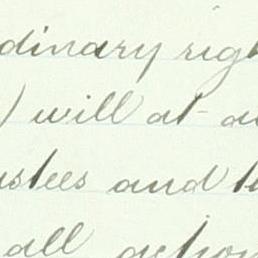 dinary righ
) will at a
ustees and t
all action